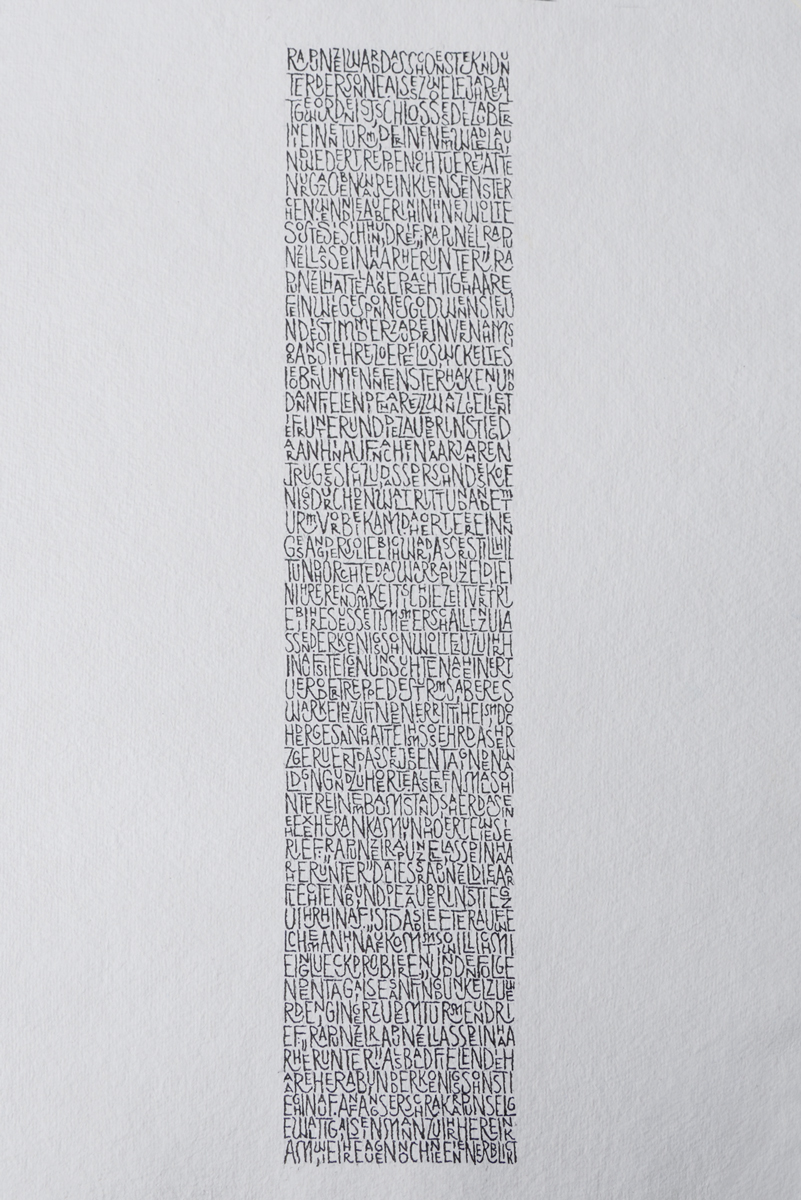 RAPUNZELWARDDASSCHOENSTEKINDUN
TERDERSONNEALSESZWOELFJAHREAL
TGEWORDENIST,SCHLOSSESDIEZAUBER
IN IN EINEN TURM, DER IN EINEM WALDE LAG, U
NDWEDERTREPPENOCHTUEREHATTE
NURGANZOBENWAREINKLEINESFENSTER
CHEN.WENNDIEZAUBERINHINEINWOLLTE
SOSTELLTESIESICHHIN,UNDRIEF:„RAPUNZEL,RAPU
NZELLASSDEINHAARHERUNTER!“RA
PUNZELHATTELANGEPRAECHTIGEHAARE
FEINWIEGESPONNENESGOLD.WENNSIENU
NDIESTIMMEDERZAUBERINVERNAHM,S
OBANDSIEIHREZOEPFELOS,WICKELTESI
EOBENUMEINENFENSTERHAKEN,UND
DANNFIELENDIEHAAREZWANZIGELLENT
IEFHERUNTERUNDDIEZAUBERINSTIEGD
ARANHINAUF.NACHEINPAARJAHREN
TRUGESSICHZU,DASSDERSOHNDESKOE
NIGSDURCHDENWALDRITTUNDANDEMT
URMVORBEIKAM.DAHOERTEEREINEN
GESANG,DERSOLIEBLICHWAR,DASSERSTILLHIEL
TUNDHORCHTE.DASWARRAPUNZEL,DIEI
NIHRERENSAMKEITSICHDIEZEITVERTRI
EB,IHRESUESSESTIMMEERSCHALLENZULA
SSEN.DERKOENIGSSOHNWOLLTEZUIHRH
INAUFSTEIGENUNDSUCHTENACHEINERT
UERODERTREPPEDESTURMSABERES
WARKEINEZUFINDEN.ERRITTHEIM.DO
CHDERGESANGHATTEIHMSOSEHRDASHER
ZGERUEHRT,DASSERJEDENTAGINDENWA
LDGINGUNDZUHOERTE.ALSEREINMALSOHI
NTEREINEMBAUMSTAND,SAHERDASSEIN
EHEXEHERANKAMUNDHOERTEWIESIE
RIEF:„RAPUNZEL,RAPUNZEL,LASSDEINHAA
RHERUNTER“DALIESSRAPUNZELDIEHAAR
FLECHTENAB,UNDDIEZAUBERINSTIEGZ
UIHRHINAUF.„ISTDASDIELEITERAUFWE
LCHEMANHINAUFKOMMT,SOWILLICHMI
EINGLUECKPROBIEREN.“UNDDENFOLGE
NDENTAG,ALSESANFINGDUNKELZUWE
RDENGINGERZUDEMTURMEUNDRI
EF:„RAPUNZEL,RAPUNZELLASSDEINHAA
RHERUNTER“ALSBALDFIELENDIEH
AAREHERABUNDDERKOENIGSSOHNSTI
EGHINAUF.ANFANGSERSCHRAKRAPUNSELG
EWALTIG,ALSEINMANNZUIHRHEREINK
AM,WIEIHREAUGENNOCHNIEEINENERBLICKT